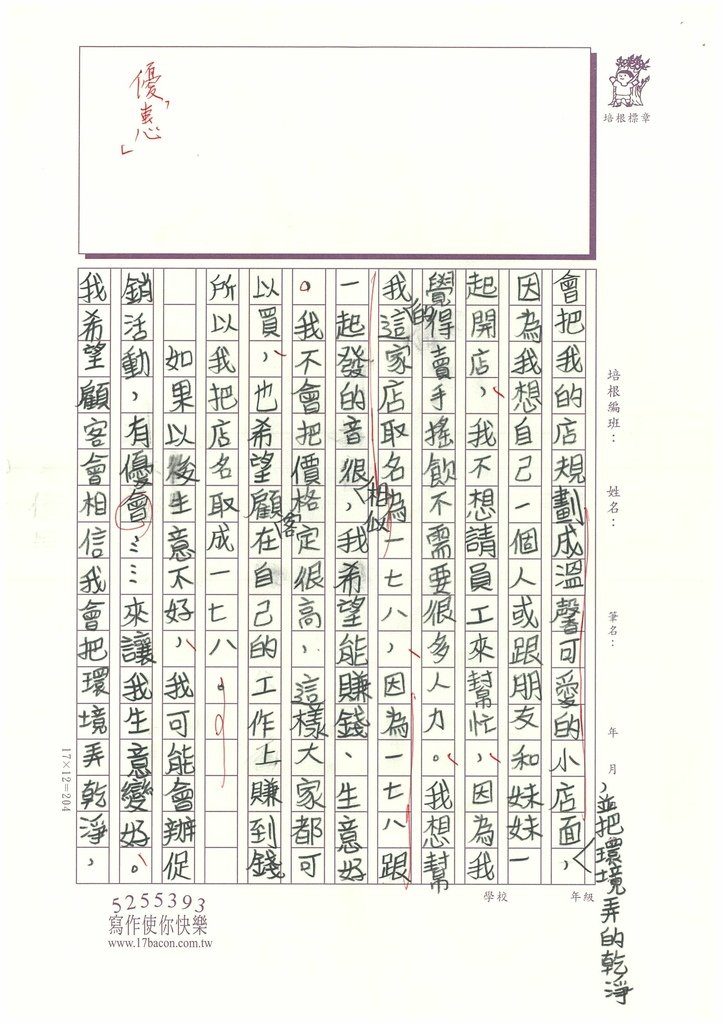 優惠
培根標章
培根編班：
姓名：
筆名：
年　月
學校
年級
會把我的店規劃成溫馨可愛的小店面，
，並把環境弄的乾淨
因為我想自己一個人或跟朋友和妹妹一
起開店，我不想請員工來幫忙，因為我
覺得賣手搖飲不需要很多人力。我想幫
我的這家店取名為一七八，因為一七八跟
一起發的音很相似，我希望能賺錢、生意好
。我不會把價格定很高，這樣大家都可
以買，也希望顧客在自己的工作上賺到錢
所以我把店名取成一七八。
如果以後生意不好，我可能會辦促
銷活動，有優會……來讓我生意變好。
我希望顧客會相信我會把環境弄乾淨，
17×12=204
5255393
寫作使你快樂
www.17bacon.com.tw